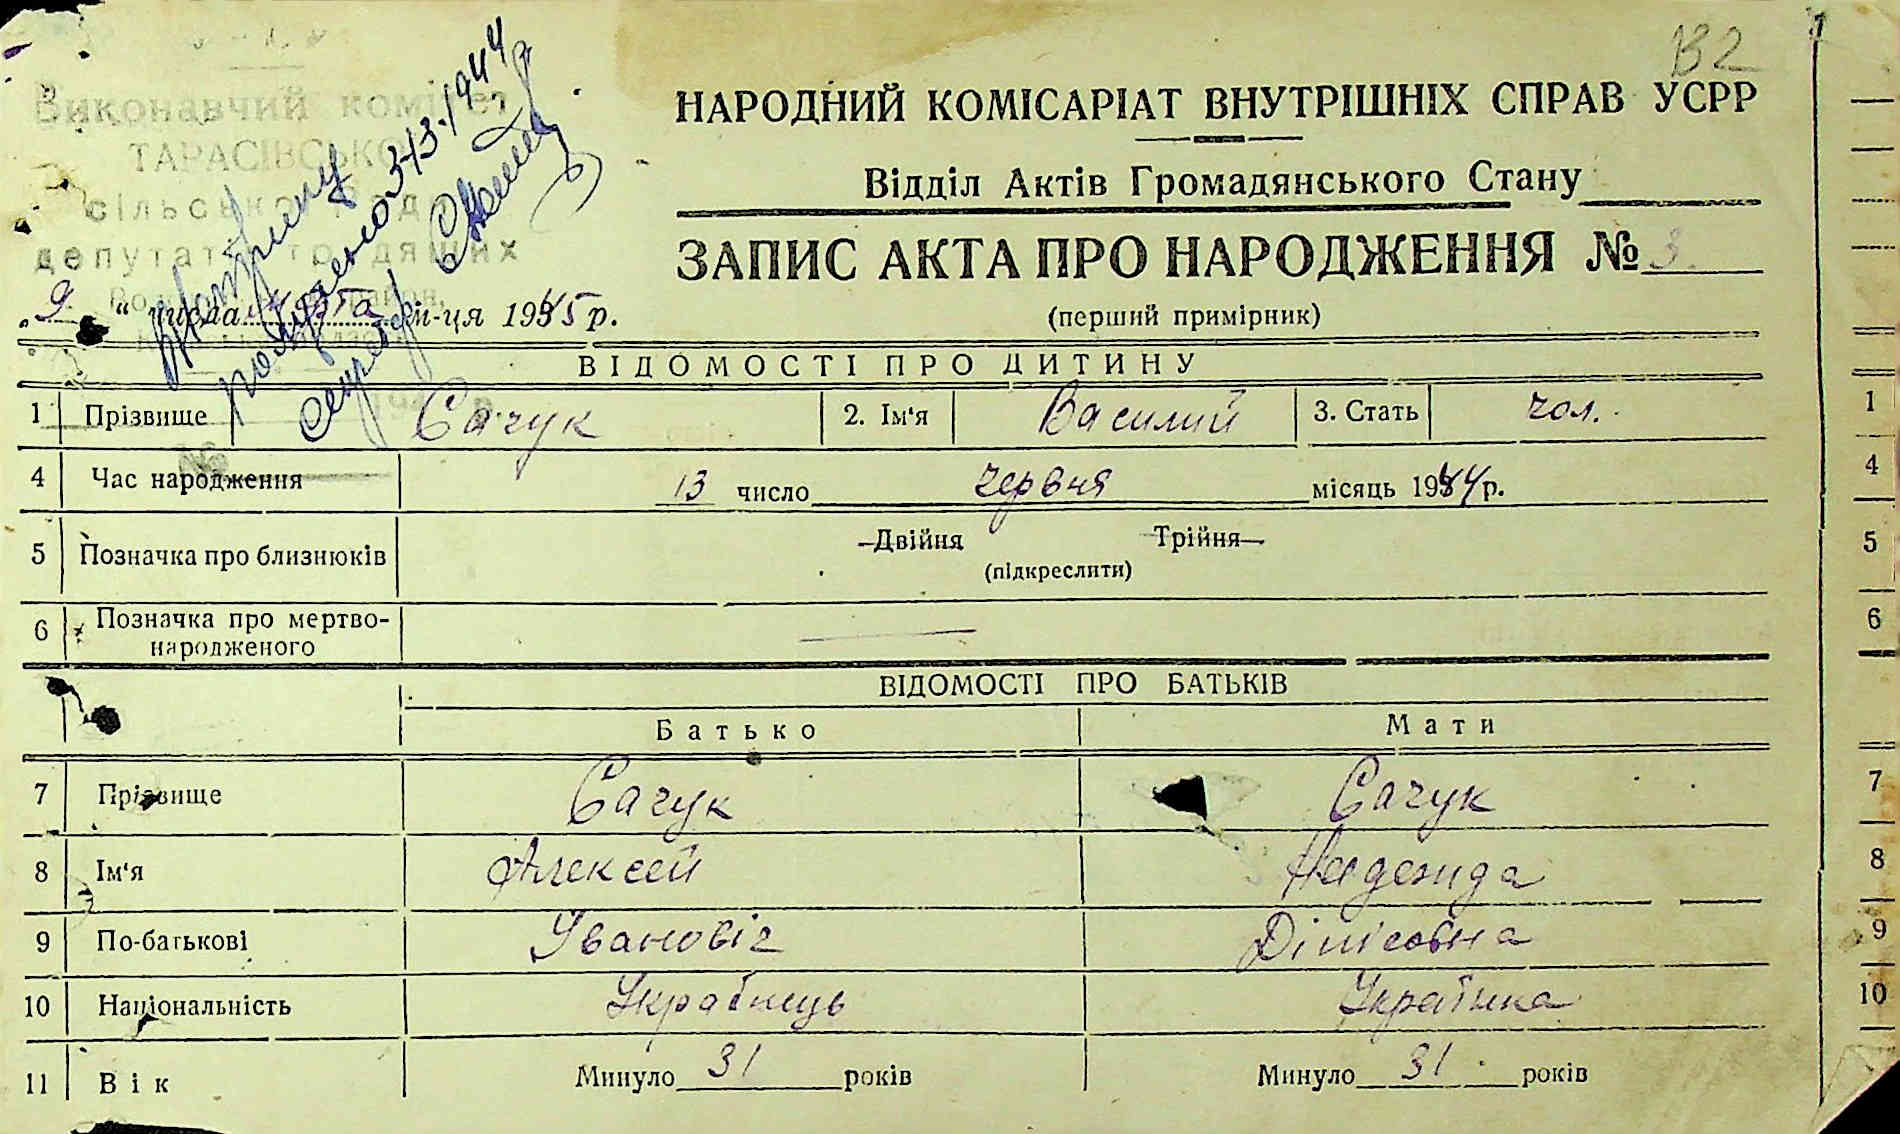 132
Виконавчий комітет
ТАРАСІВСЬКОЇ
сільської Ради
депутатів трудящих
НАРОДНИЙ КОМІСАРІАТ ВНУТРІШНІХ СПРАВ УСРР
Відділ Актів Громадянського Стану
ЗАПИС АКТА ПРО НАРОДЖЕННЯ № 3
(перший примірник)
9 " числа марта м-ця 1945 р.
ВІДОМОСТІ ПРО ДИТИНУ
1 Прізвище Сачук 2. Ім'я Василий 3. Стать чол. 1
4 Час народження 13 число червня місяць 1944 р. 4
5 Позначка про близнюків Двійня Трійня 5
(підкреслити)
6 Позначка про мертво- 6
народженого
ВІДОМОСТІ ПРО БАТЬКІВ
Батько Мати
7 Прізвище Сачук Сачук 7
8 Ім'я Алексей Надежда 8
9 По-батькові Івановіч Дінісовна 9
10 Національність Українець Українка 10
11 Вік Минуло 31 років Минуло 31 років